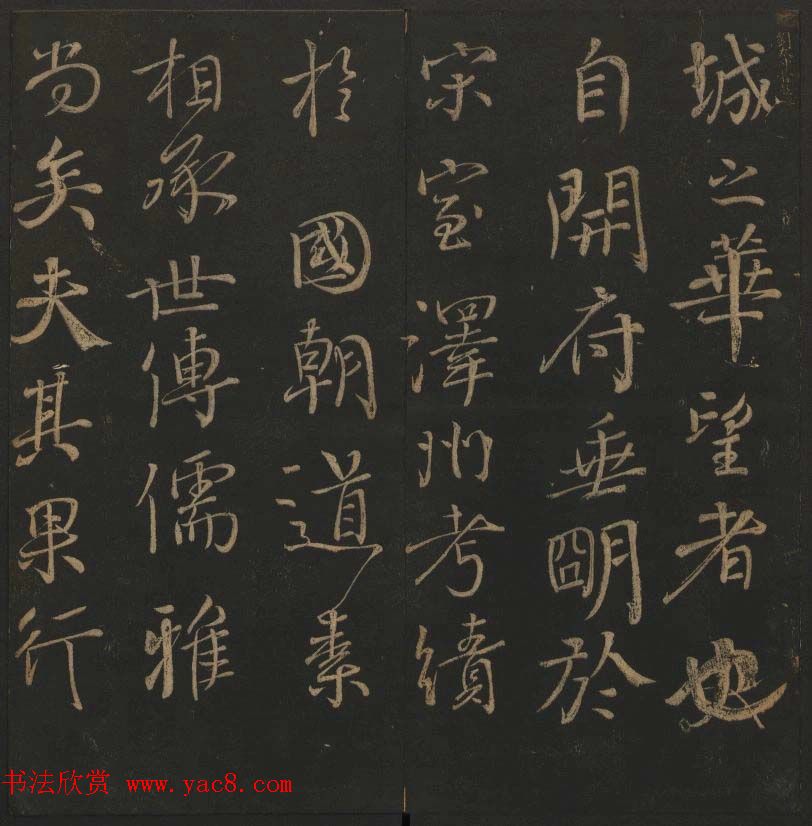 城之華望者也
自開府垂明於
宋室澤州考績
於 國朝道素
相承世傳儒雅
尚矣夫其果行
书法欣赏 www.yac8.com